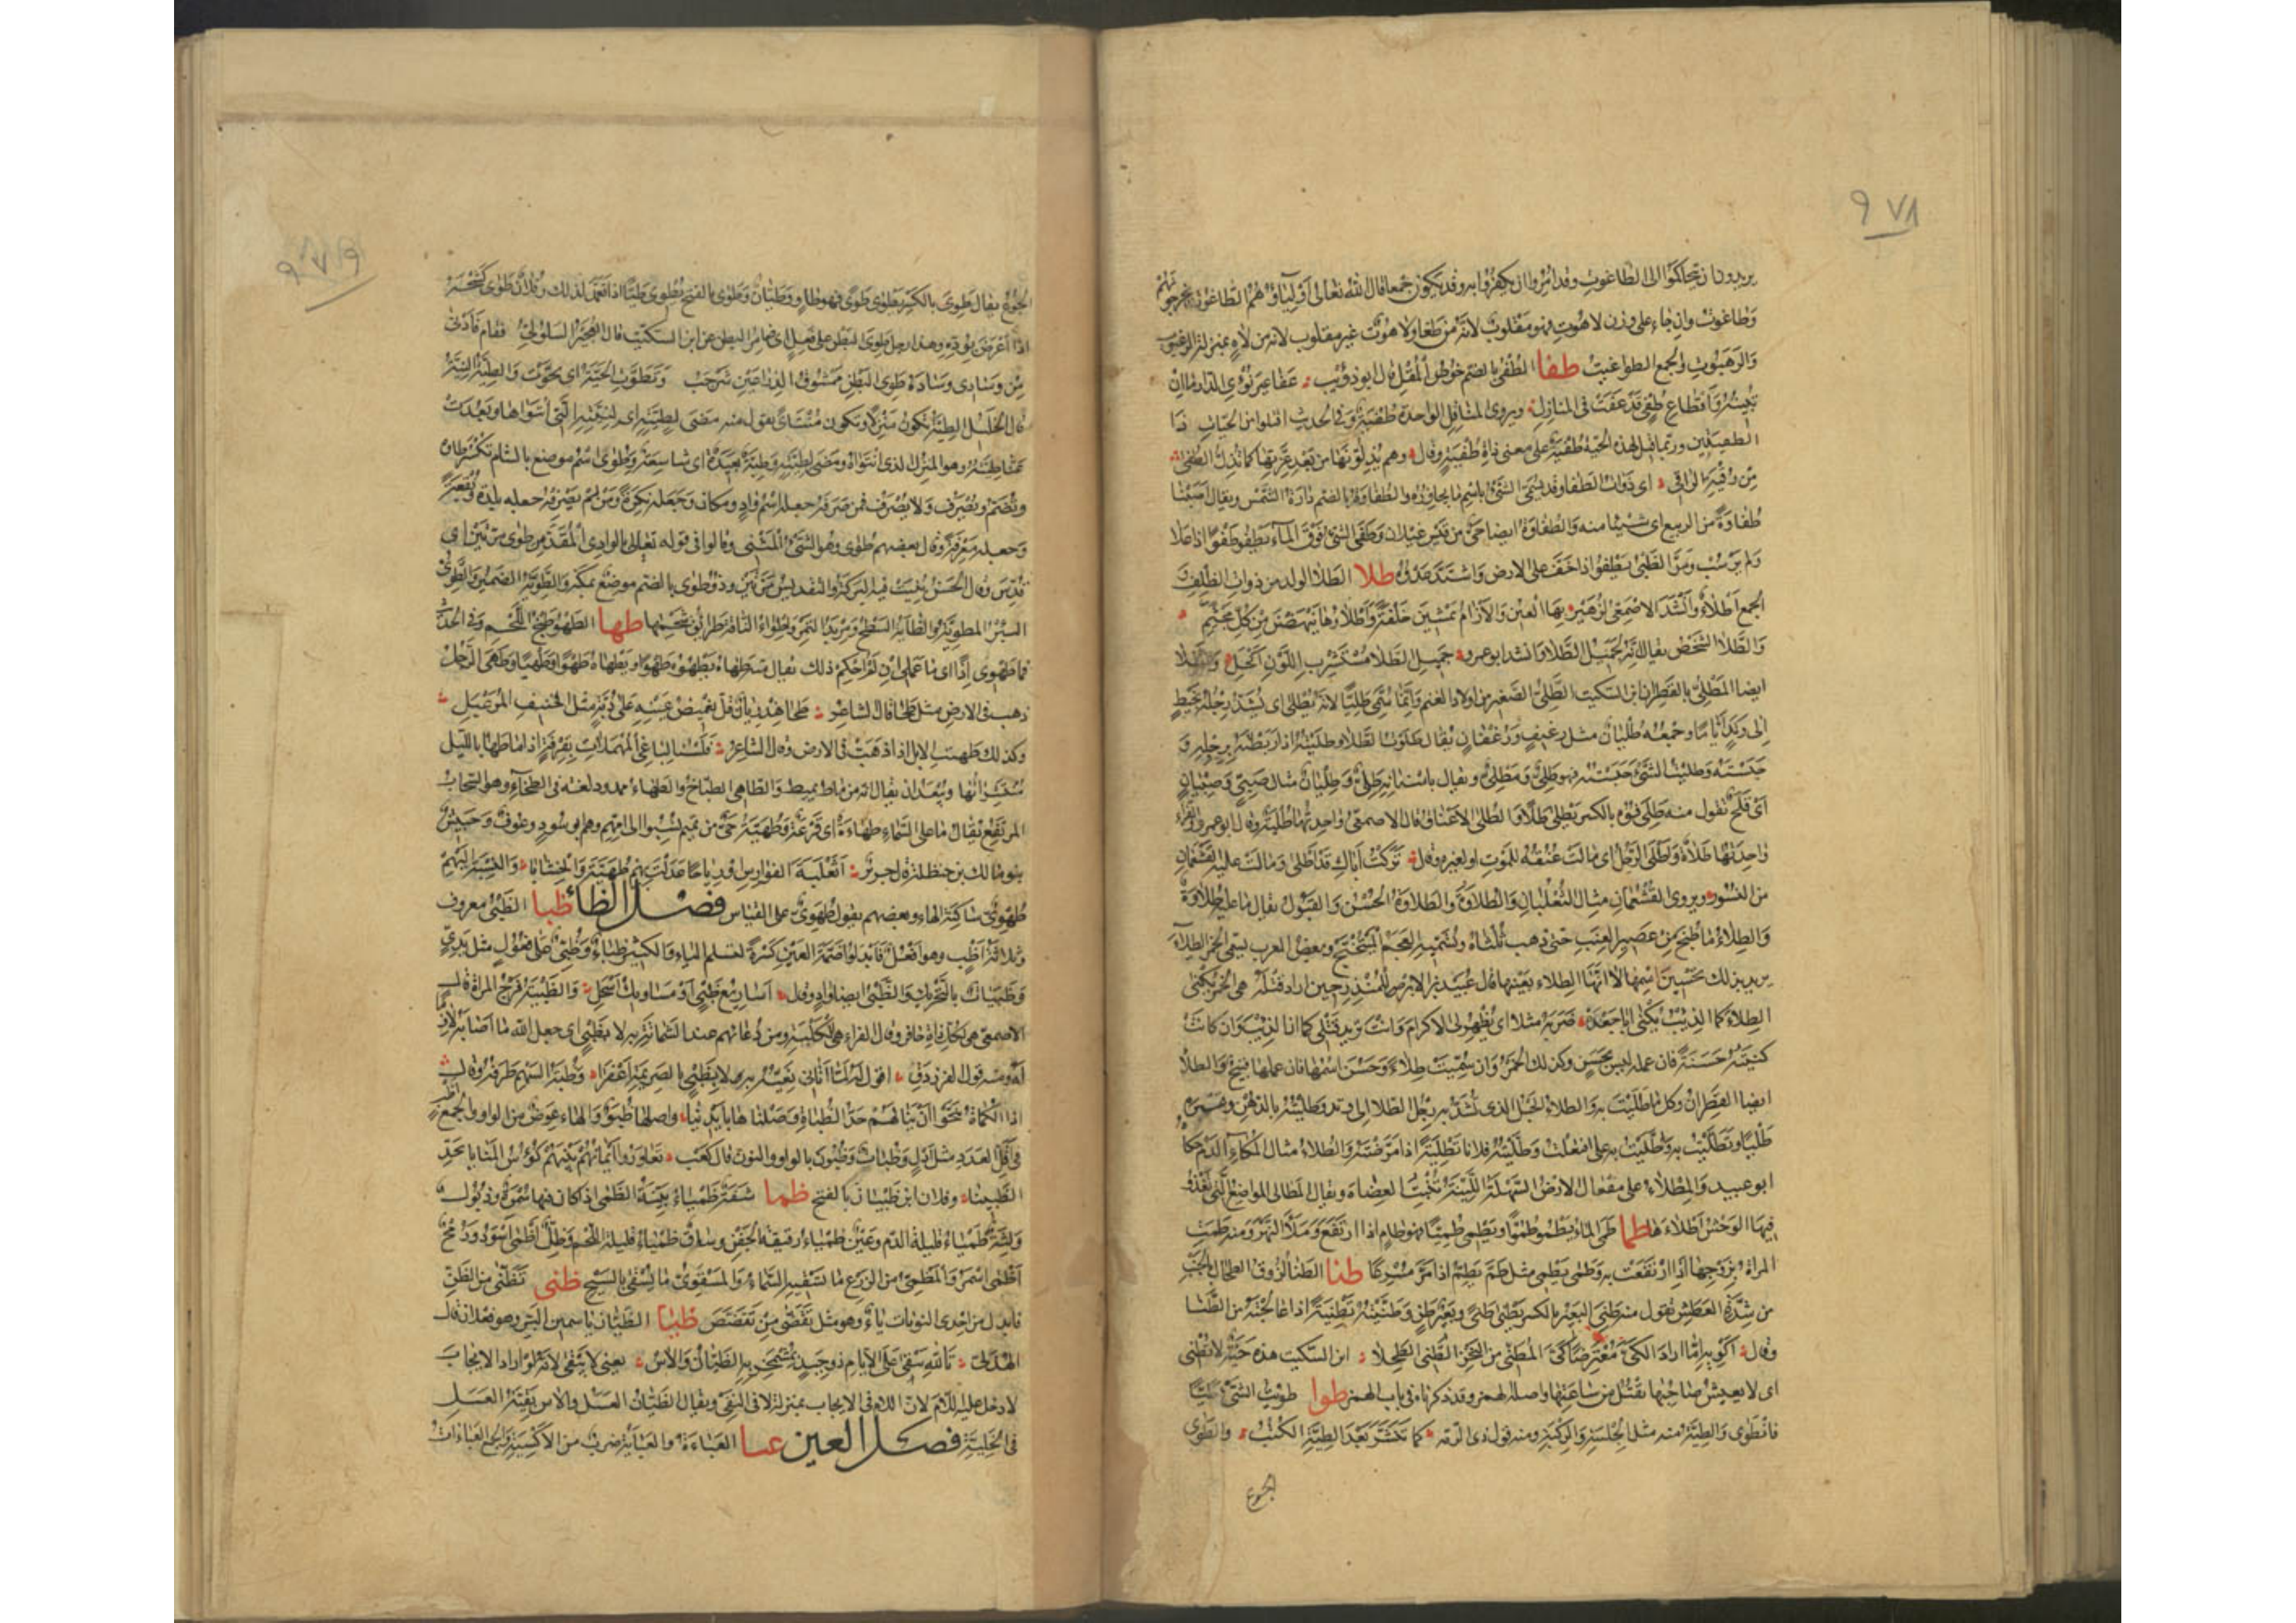 ٩٧٨
يريدون ان يتحاكموا الى الطاغوت وقد امروا ان يكفروا به وقد تكون جمعا قال الله تعالى اولياؤهم الطاغوت يخرجونهم
وطاغوت وان جاء على وزن لاهوت فهو مقلوب لانه من طغا ولاهوت غير مقلوب لانه من لاه بمنزلة الرغبوت
والرهبوت والجمع الطواغيت طفا الطفى بالضم خوص المقل قال ابو ذؤيب عفا غير نؤى الدار ما ان
تبينه واقطاع طفى قد عفت فى المنازل ويروى المناقل الواحدة طفية وفى الحديث اقتلوا من الحيات ذا
الطفيتين وربما قيل لهذه الحية طفية على معنى ذات طفية وقال وهم يذلونها من بعد عزتها كما تذل الطفى
من رقية الراقى اى ذوات الطفا وقد يسمى الشئ باسم ما يجاوره والطفاوة بالضم دارة الشمس ويقال اصبنا
طفاوة من الربيع اى شيئا منه والطفاوة ايضا حى من قيس غيلان وطفى الشئ فوق الماء يطفو طفوا اذا علا
ولم يرسب ومر الظبى يطفو اذا خف على الارض واشتد عدوه طلا الطلا الولد من ذوات الظلف
الجمع اطلاء وانشد الاصمعى لزهير بها العين والآرام يمشين خلفة واطلاؤها ينهضن من كل مجثم
والطلا الشخص يقال انه لجميل الطلا وانشد ابو عمرو جميل الطلا مستشرب اللون اكحل والطلا
ايضا المطلى بالقطران ابن السكيت الطلى الصغير من اولاد الغنم وانما سمى طليا لانه يطلى اى يشد رجله بخيط
الى وتد اياما وجمعه طليان مثل رغيف ورغفان يقال طلوت الطلا وطليته اذا ربطته برجله و
حبسته وطليت الشئ حبسته فهو طلى ومطلى ويقال باسنانه طلى وطليان مثال صبى وصبيان
اى قلح تقول منه طلى فوه بالكسر يطلى طلا والطلى الاعناق قال الاصمعى واحدتها طلية وقال ابو عمرو والفراء
واحدتها طلاة واطلى الرجل اى مالت عنقه للموت او لغيره وقال تركت اباك قد اطلى ومالت عليه القشعمان
من النسور ويروى القشعمان مثال الثعلبان والطلاوة والطلاوة الحسن والقبول يقال ما عليه طلاوة
والطلاء ما طبخ من عصير العنب حتى ذهب ثلثاه وتسميه العجم الميبختج وبعض العرب يسمى الخمر الطلاء
يريد بذلك تحسين اسمها لا انها الطلاء بعينها قال عبيد بن الابرص للمنذر حين اراد قتله هى الخمر تكنى
الطلاء كما الذيب يكنى ابا جعدة ضربه مثلا اى تظهر لى الاكرام وانت تريد قتلى كما ان الذيب وان كانت
كنيته حسنة فان عمله ليس بحسن وكذلك الخمر وان سميت طلاء وحسن اسمها فان عملها قبيح والطلا
ايضا القطران وكل ما طليت به والطلاء الحبل الذى تشد به رجل الطلا الى وتد وطليته بالدهن وغيره
طليا وتطليت به واطليت به على افتعلت وطليت فلانا تطلية اذا مرضته والطلاء مثال المكاء الدم حكاه
ابو عبيد والمطلاء على مفعال الارض السهلة اللينة تنبت العضاه ويقال المطالى المواضع التى تغذو
فيها الوحش اطلاءها طما طمى الماء يطمو طموا ويطمى طميا فهو طام اذا ارتفع وملا النهر ومنه طمت
المراة بزوجها اذا ارتفعت به وطمى يطمى مثل طم يطم اذا مر مسرعا طنا الطنا لزوق الطحال بالجنب
من شدة العطش تقول منه طنى البعير بالكسر يطنى طنى وبعير طن وطنيته تطنية اذا عالجته من الطنا
وقال اكويه اما اراد الكى معترضا كى المطنى من النحز الطنى الطحلا ابن السكيت هذه حية لا تطنى
اى لا يعيش صاحبها تقتل من ساعتها واصله الهمز وقد ذكرناه فى باب الهمز طوا طويت الشئ طيا
فانطوى والطية منه مثل الجلسة والركبة ومنه قول ذى الرمة كما تنشر بعد الطية الكتب والطوى
الجوع
٩٧٩
الجوع يقال طوى بالكسر يطوى طوى فهو طاو وطيان وطوى بالفتح يطوى طيا اذا تعمد لذلك وفلان طوى كشحه
اذا اعرض بوده وهذا رجل طوى البطن على فعل اى ضامر البطن عن ابن السكيت قال العجير السلولى فقام فادنى
من وسادى وساده طوى البطن ممشوق الذراعين شرجب وتطوت الحية اى تحوت والطية النية
قال الخليل الطية تكون منزلا وتكون منتأى تقول منه مضى لطيته اى لنيته التى انتواها وبعدت
عنا طيته وهو المنزل الذى انتواه ومضى لطيته وطية بعيدة اى شاسعة وطوى اسم موضع بالشام تكسر طاه
وتضم وتصرف ولا يصرف فمن صرفه جعله اسم واد ومكان وجعله نكرة ومن لم يصرفه جعله بلدة وبقعة
وجعله معرفة وقال بعضهم طوى وهو الشئ المثنى وقالوا فى قوله تعالى بالوادى المقدس طوى مرتين اى
قدس وقال الحسن ثنيت فيه البركة والتقديس مرتين وذو طوى بالضم موضع بمكة والطوية الضمير والطوى
البئر المطوية والطاية السطح ومربد التمر واطواء الناقة طرائق شحمها طها الطهو طبخ اللحم وفى الحديث
فما طهوى اذا اى ما عملى ان لم احكم ذلك يقال منه طهاه يطهوه طهوا ويطهاه طهوا وطهيا وطهى الرجل
ذهب فى الارض مثل طحا قال الشاعر
وكذلك طهت الابل اذا ذهبت فى الارض وقال الشاعر فلسنا لباغى المهملات بقرفة اذا ما طها بالليل
منتشراتها ويبعد ان يقال انه من ماط يميط والطاهى الطباخ والطهاء ممدود لغة فى الطخاء وهو السحاب
المرتفع يقال ما على السماء طهاءة اى قزعة وطهية حى من تميم نسبوا الى امهم وهم ابو سود وعوف وحبيش
بنو مالك بن حنظلة قال جرير اثعلبة الفوارس او رياحا عدلت بهم طهية والخشابا والنسبة اليهم
طهوى ساكنة الهاء وبعضهم يقول طهوى على القياس فصل الظا ظبا الظبى معروف
وثلاثة اظب وهو افعل فابدلوا ضمة العين كسرة لتسلم الياء والكثير ظباء وظبى على فعول مثل ثدى
وظبيات بالتحريك والظبى ايضا واد وقال اساريع ظبى او مساويك اسحل والظبية فرج المراة قال
الاصمعى هى لكل ذات حافر وقال الفراء هى للكلبة ومن دعائهم عند الشماتة به لا بظبى اى جعل الله ما اصابه لازما
له ومنه قول الفرزدق اقول له لما اتانى نعيه به لا بظبى بالصريمة اعفرا وظبة السهم طرفه وقال
اذا الكماة تنحوا ان ينالهم حد الظباة وصلناها بايدينا واصلها ظبو والهاء عوض من الواو والجمع اظب
فى اقل العدد مثل ادل وظبات وظبون بالواو والنون قال كعب تعاور ايمانهم بينهم كؤوس المنايا بحد
الظبينا وفلان ابن ظبيان بالفتح ظما شفة ظمياء بينة الظمى اذا كان فيها سمرة وذبول
ولثة ظمياء قليلة الدم وعين ظمياء رقيقة الجفن وساق ظمياء قليلة اللحم وظل اظمى اسود ورمح
اظمى اسمر والمظمى من الزرع ما تسقيه السماء والمسقوى ما يسقى بالسيح ظنى تظنى من الظن
فابدل من احدى النونات ياء وهو مثل تقضى من تقضض ظيا الظيان ياسمين البر وهو فعلان قال
الهذلى تالله يبقى على الايام ذو حيد بمشمخر به الظيان والآس يعنى لا يبقى لانه لو اراد الايجاب
لادخل عليه اللام لان اللام فى الايجاب بمنزلة لا فى النفى ويقال الظيان العسل والآس بقية العسل
فى الخلية فصل العين عبا العباءة والعباية ضرب من الاكسية والجمع العباءات